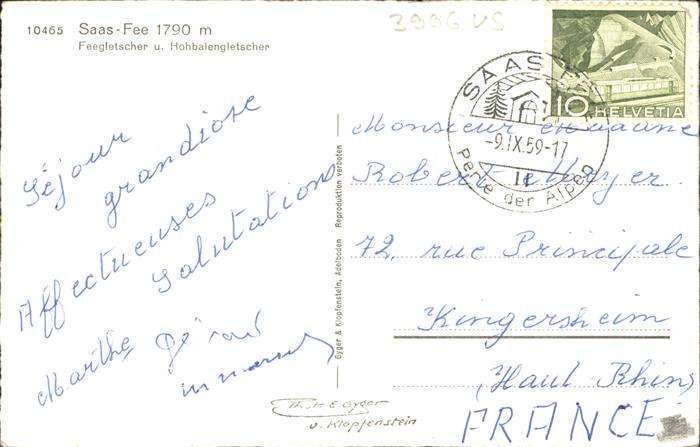 10465 Saas-Fee 1790 m
Feegletscher u. Hohbalengletscher
3996 VS
HELVETIA
10
SAAS-FEE
-9.IX.59-17
Perle der Alpen
Séjour
grandiose
Affectueuses
Salutations
Marthe Gérard
Eyger & Klopfenstein, Adelboden Reproduktion verboten
Monsieur Madame
Robert Meyer
72, rue Principale
Kingersheim
(Haut Rhin)
FRANCE
Phot. E. Gyger
u. Klopfenstein